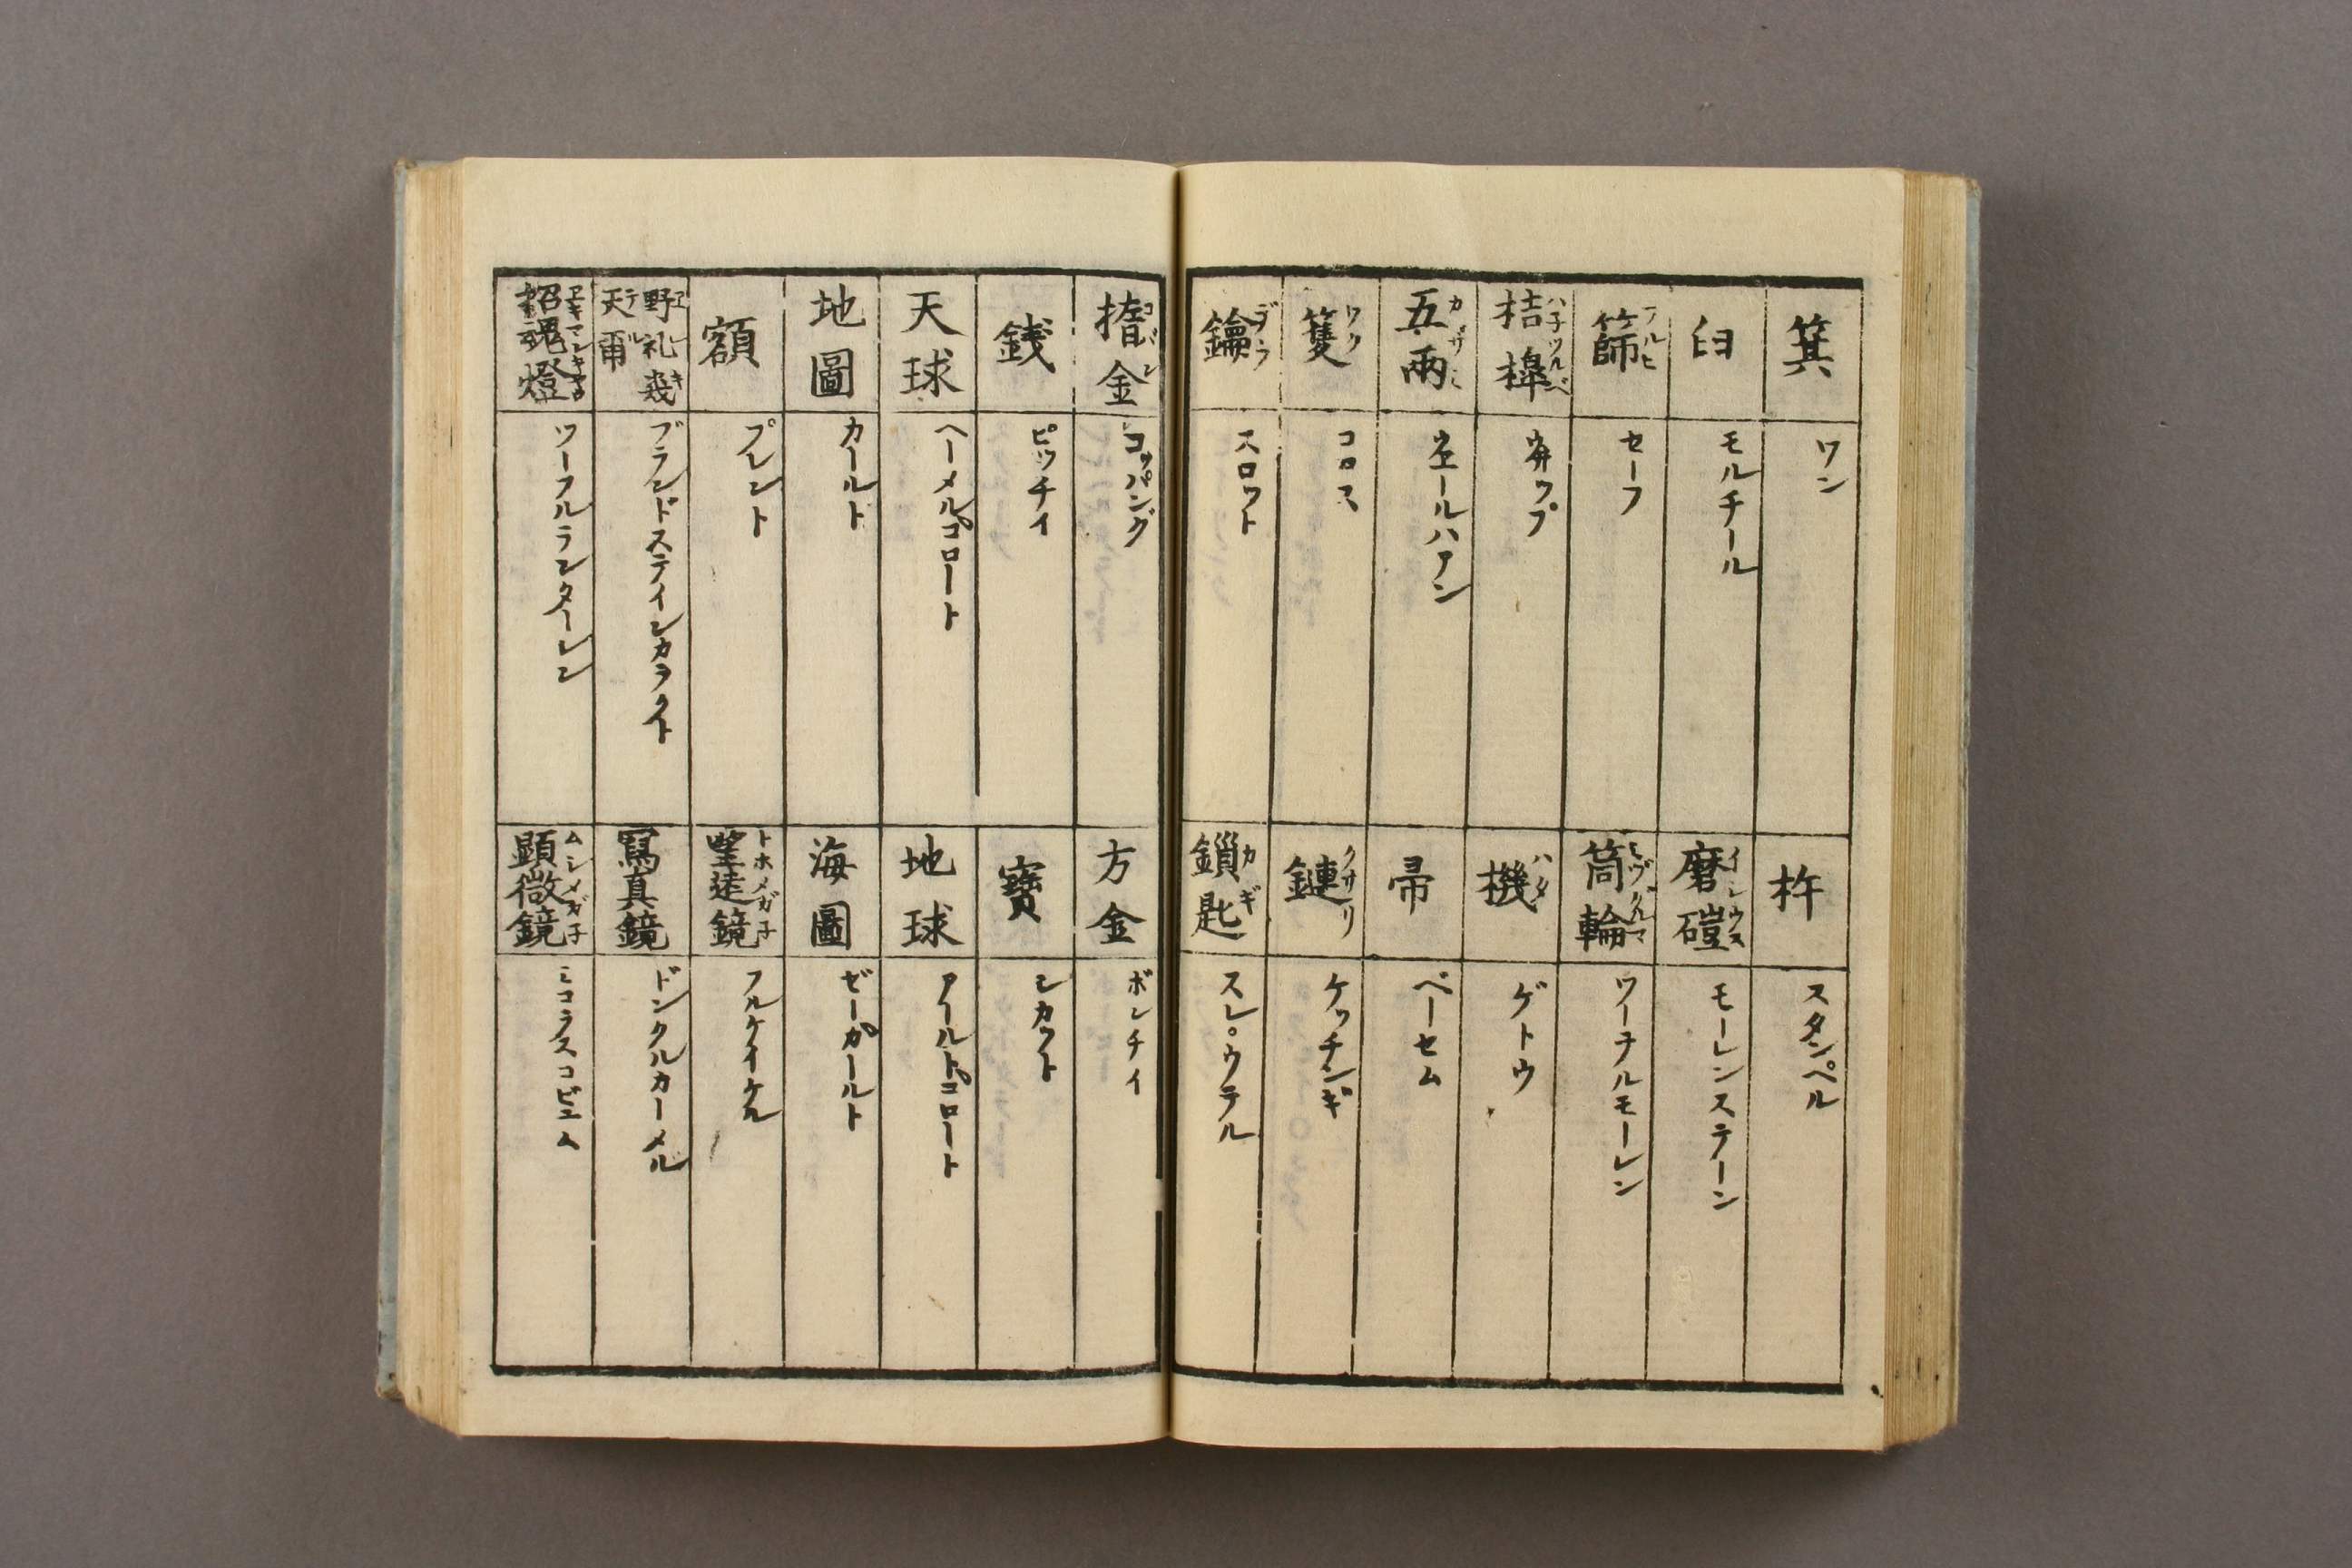 箕 ワン
臼 モルチール
篩 フルヒ セーフ
桔槹 ハ子ツルベ ウ井ップ
五兩 カザミ ウエールハアン
籰 ワク コロス
鑰 ヂヤウ スロット
杵 スタンペル
磨磑 イシウス モーレンステーン
筒輪 ミヅグルマ ワーテルモーレン
機 ハタ ゲトウ
帚 ベーセム
鏈 クサリ ケッチンギ
鎖匙 カギ スレウテル
擂金 コバン コッパング
銭 ピッチイ
天球 ヘーメルゴロート
地圖 カールト
額 プレント
野礼幾天爾 ヱレキテル ブランドステインカラクト
招魂燈 ヱキマンキヤウ ワーフルランターレン
方金 ボンチイ
寶 シカット
地球 アールドゴロート
海圖 ゼーカールト
望遠鏡 トホメガ子 フルケイケル
寫真鏡 ドンクルカーメル
顕微鏡 ムシメガ子 ミコラスコピユム